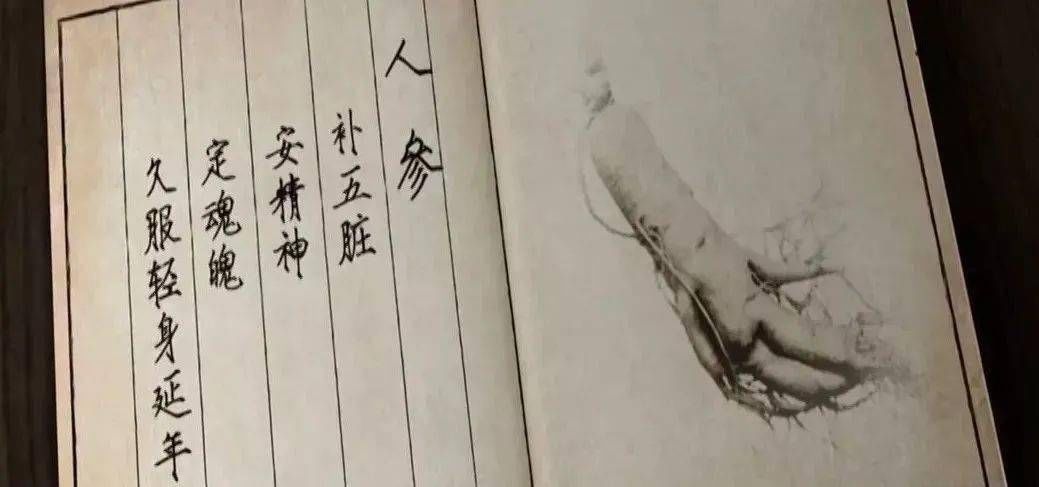 人参
补五脏
安精神
定魂魄
久服轻身延年